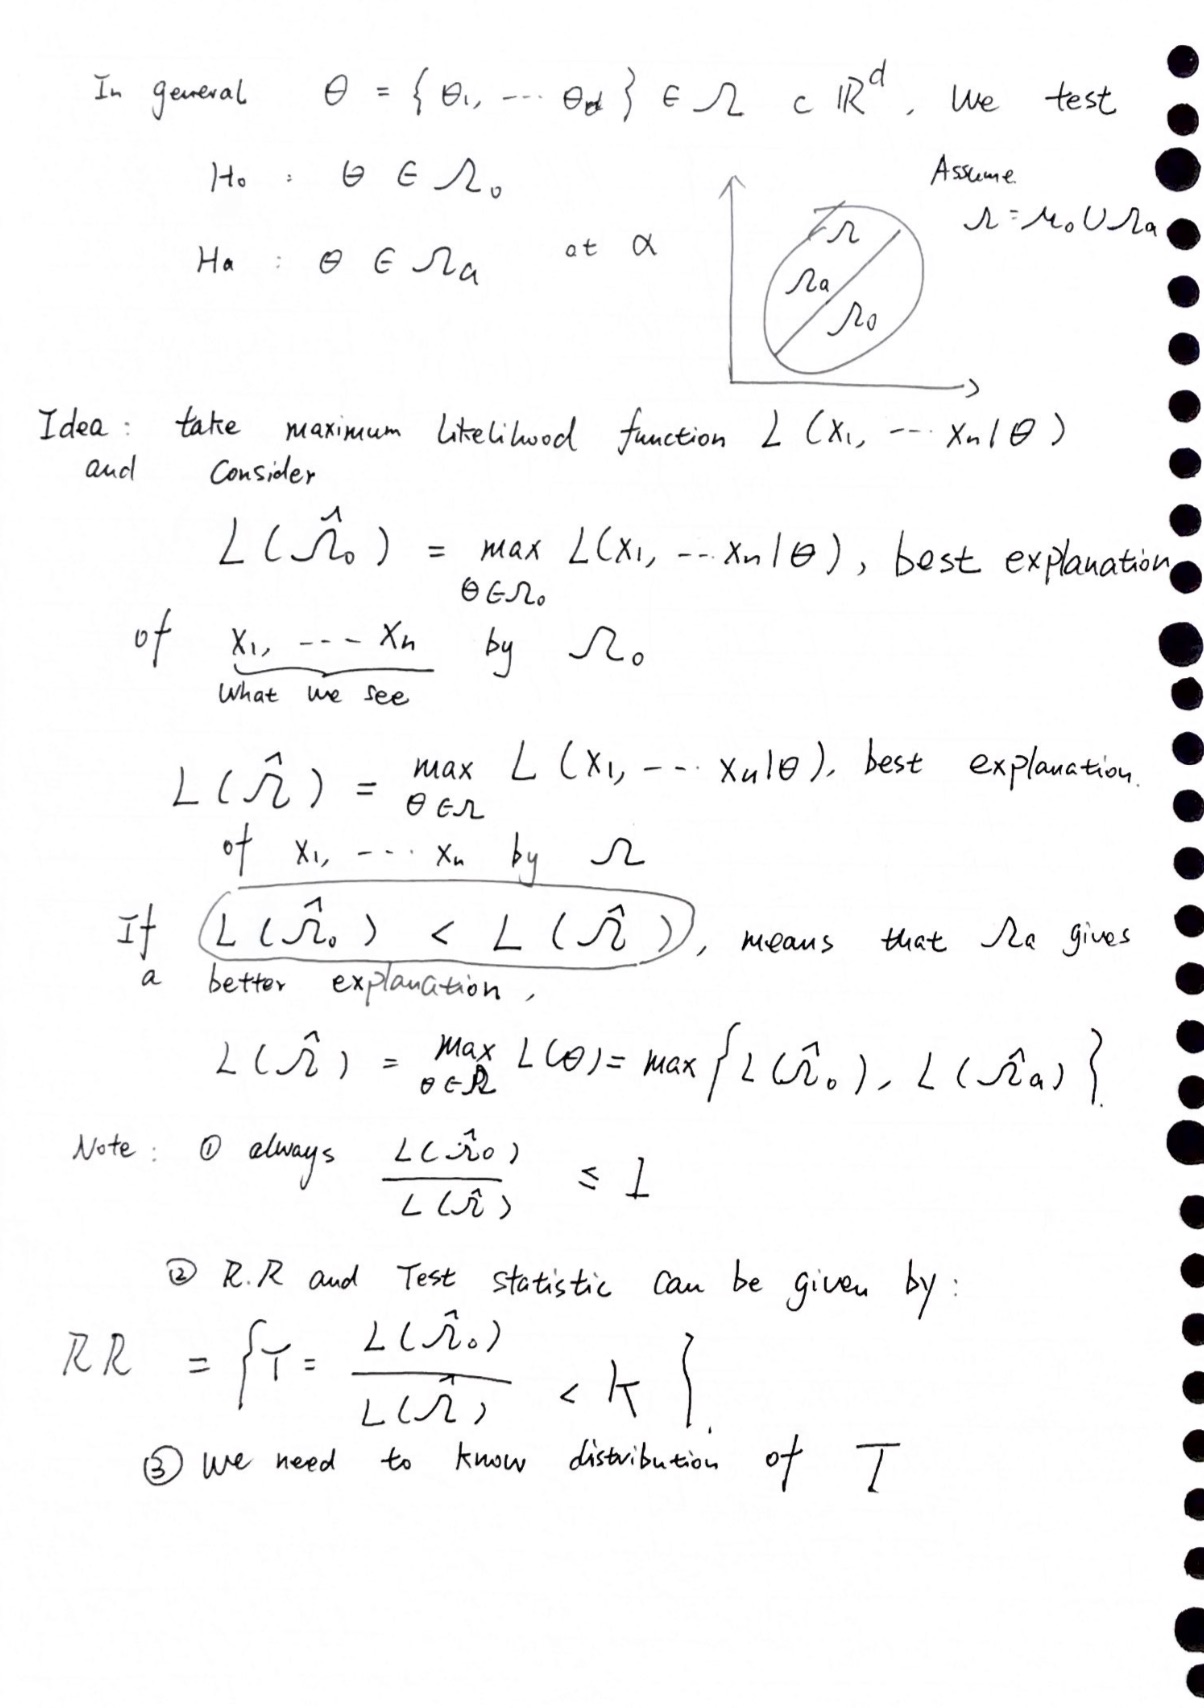 In general θ = { θ₁, --- θd } ∈ Ω ⊂ ℝᵈ, we test
H₀ : θ ∈ Ω₀
Assume
Ω = Ω₀ ∪ Ωa
Ha : θ ∈ Ωa at α
Ω
Ωa
Ω₀
Idea : take maximum likelihood function L (x₁, --- xn | θ)
and consider
L(Ω̂₀) = max L(x₁, --- xn | θ), best explanation
θ∈Ω₀
of x₁, --- xn by Ω₀
what we see
L(Ω̂) = max L (x₁, --- xn | θ), best explanation.
θ∈Ω
of x₁, --- xn by Ω
If L(Ω̂₀) < L(Ω̂), means that Ωa gives
a better explanation,
L(Ω̂) = max L(θ) = max { L(Ω̂₀), L(Ω̂a) }.
θ∈Ω
Note : ① always L(Ω̂₀) / L(Ω̂) ≤ 1
② R.R and Test statistic can be given by :
RR = { T = L(Ω̂₀) / L(Ω̂) < k }.
③ we need to know distribution of T